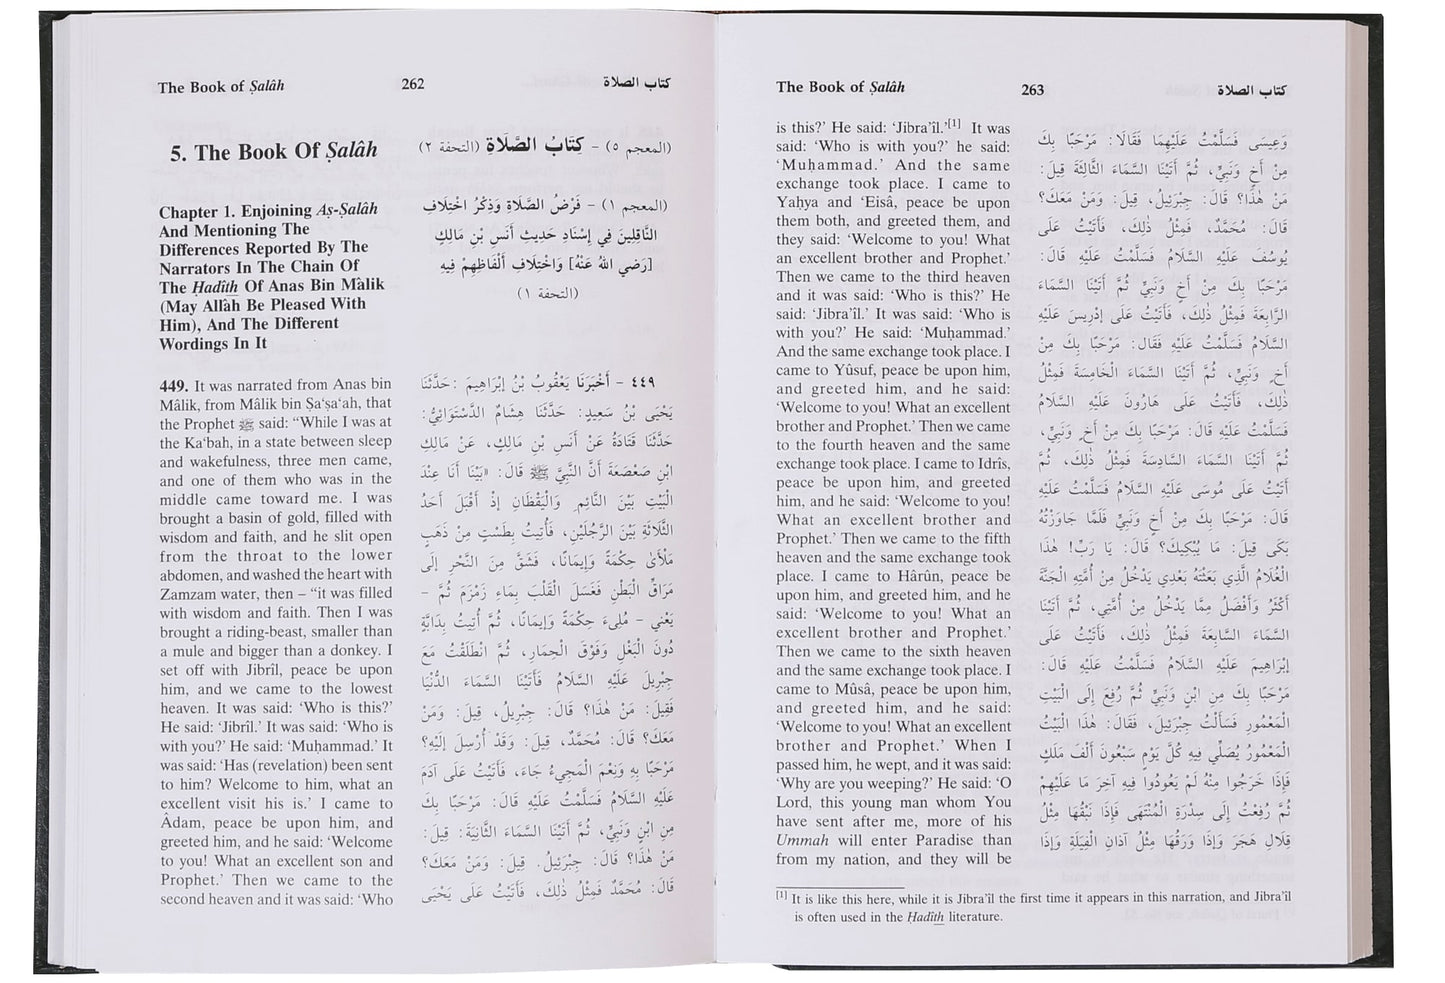 The Book of Ṣalâh
262
كتاب الصلاة
5. The Book Of Ṣalâh
Chapter 1. Enjoining Aṣ-Ṣalâh
And Mentioning The
Differences Reported By The
Narrators In The Chain Of
The Ḥadîth Of Anas Bin Mâlik
(May Allâh Be Pleased With
Him), And The Different
Wordings In It
449. It was narrated from Anas bin
Mâlik, from Mâlik bin Ṣa‘ṣa‘ah, that
the Prophet ﷺ said: “While I was at
the Ka‘bah, in a state between sleep
and wakefulness, three men came,
and one of them who was in the
middle came toward me. I was
brought a basin of gold, filled with
wisdom and faith, and he slit open
from the throat to the lower
abdomen, and washed the heart with
Zamzam water, then – “it was filled
with wisdom and faith. Then I was
brought a riding-beast, smaller than
a mule and bigger than a donkey. I
set off with Jibrîl, peace be upon
him, and we came to the lowest
heaven. It was said: ‘Who is this?’
He said: ‘Jibrîl.’ It was said: ‘Who is
with you?’ He said: ‘Muḥammad.’ It
was said: ‘Has (revelation) been sent
to him? Welcome to him, what an
excellent visit his is.’ I came to
Âdam, peace be upon him, and
greeted him, and he said: ‘Welcome
to you! What an excellent son and
Prophet.’ Then we came to the
second heaven and it was said: ‘Who
(المعجم ٥) – كِتَابُ الصَّلَاةِ (التحفة ٢)
(المعجم ١) – فَرْضُ الصَّلَاةِ وَذِكْرُ اخْتِلَافِ
النَّاقِلِينَ فِي إِسْنَادِ حَدِيثِ أَنَسِ بْنِ مَالِكٍ
[رَضِي اللهُ عَنْهُ] وَاخْتِلَافِ أَلْفَاظِهِمْ فِيهِ
(التحفة ١)
٤٤٩ – أَخْبَرَنَا يَعْقُوبُ بْنُ إِبْرَاهِيمَ: حَدَّثَنَا
يَحْيَى بْنُ سَعِيدٍ: حَدَّثَنَا هِشَامٌ الدَّسْتَوَائِيُّ:
حَدَّثَنَا قَتَادَةُ عَنْ أَنَسِ بْنِ مَالِكٍ، عَنْ مَالِكِ
ابْنِ صَعْصَعَةَ أَنَّ النَّبِيَّ ﷺ قَالَ: «بَيْنَا أَنَا عِنْدَ
الْبَيْتِ بَيْنَ النَّائِمِ وَالْيَقْظَانِ إِذْ أَقْبَلَ أَحَدُ
الثَّلَاثَةِ بَيْنَ الرَّجُلَيْنِ، فَأُتِيتُ بِطَسْتٍ مِنْ ذَهَبٍ
مَلْأَىٰ حِكْمَةً وَإِيمَانًا، فَشَقَّ مِنَ النَّحْرِ إِلَى
مَرَاقِّ الْبَطْنِ فَغَسَلَ الْقَلْبَ بِمَاءِ زَمْزَمَ ثُمَّ –
يَعْنِي – مُلِىءَ حِكْمَةً وَإِيمَانًا، ثُمَّ أُتِيتُ بِدَابَّةٍ
دُونَ الْبَغْلِ وَفَوْقَ الْحِمَارِ، ثُمَّ انْطَلَقْتُ مَعَ
جِبْرِيلَ عَلَيْهِ السَّلَامُ فَأَتَيْنَا السَّمَاءَ الدُّنْيَا
فَقِيلَ: مَنْ هٰذَا؟ قَالَ: جِبْرِيلُ، قِيلَ: وَمَنْ
مَعَكَ؟ قَالَ: مُحَمَّدٌ، قِيلَ: وَقَدْ أُرْسِلَ إِلَيْهِ؟
مَرْحَبًا بِهِ وَنِعْمَ الْمَجِيءُ جَاءَ، فَأَتَيْتُ عَلَى آدَمَ
عَلَيْهِ السَّلَامُ فَسَلَّمْتُ عَلَيْهِ قَالَ: مَرْحَبًا بِكَ
مِنِ ابْنٍ وَنَبِيٍّ، ثُمَّ أَتَيْنَا السَّمَاءَ الثَّانِيَةَ: قِيلَ:
مَنْ هٰذَا؟ قَالَ: جِبْرَئِيلُ. قِيلَ: وَمَنْ مَعَكَ؟
قَالَ: مُحَمَّدٌ فَمِثْلُ ذٰلِكَ، فَأَتَيْتُ عَلَى يَحْيَى
The Book of Ṣalâh
263
كتاب الصلاة
is this?’ He said: ‘Jibra’îl.’[1] It was
said: ‘Who is with you?’ he said:
‘Muḥammad.’ And the same
exchange took place. I came to
Yaḥya and ‘Eisâ, peace be upon
them both, and greeted them, and
they said: ‘Welcome to you! What
an excellent brother and Prophet.’
Then we came to the third heaven
and it was said: ‘Who is this?’ He
said: ‘Jibra’îl.’ It was said: ‘Who is
with you?’ He said: ‘Muḥammad.’
And the same exchange took place. I
came to Yûsuf, peace be upon him,
and greeted him, and he said:
‘Welcome to you! What an excellent
brother and Prophet.’ Then we came
to the fourth heaven and the same
exchange took place. I came to Idris,
peace be upon him, and greeted
him, and he said: ‘Welcome to you!
What an excellent brother and
Prophet.’ Then we came to the fifth
heaven and the same exchange took
place. I came to Hârûn, peace be
upon him, and greeted him, and he
said: ‘Welcome to you! What an
excellent brother and Prophet.’
Then we came to the sixth heaven
and the same exchange took place. I
came to Mûsâ, peace be upon him,
and greeted him, and he said:
‘Welcome to you! What an excellent
brother and Prophet.’ When I
passed him, he wept, and it was said:
‘Why are you weeping?’ He said: ‘O
Lord, this young man whom You
have sent after me, more of his
Ummah will enter Paradise than
from my nation, and they will be
وَعِيسَى فَسَلَّمْتُ عَلَيْهِمَا فَقَالَا: مَرْحَبًا بِكَ
مِنْ أَخٍ وَنَبِيٍّ، ثُمَّ أَتَيْنَا السَّمَاءَ الثَّالِثَةَ قِيلَ:
مَنْ هٰذَا؟ قَالَ: جِبْرَئِيلُ، قِيلَ: وَمَنْ مَعَكَ؟
قَالَ: مُحَمَّدٌ، فَمِثْلُ ذٰلِكَ، فَأَتَيْتُ عَلَى
يُوسُفَ عَلَيْهِ السَّلَامُ فَسَلَّمْتُ عَلَيْهِ قَالَ:
مَرْحَبًا بِكَ مِنْ أَخٍ وَنَبِيٍّ ثُمَّ أَتَيْنَا السَّمَاءَ
الرَّابِعَةَ فَمِثْلُ ذٰلِكَ، فَأَتَيْتُ عَلَى إِدْرِيسَ عَلَيْهِ
السَّلَامُ فَسَلَّمْتُ عَلَيْهِ فَقَالَ: مَرْحَبًا بِكَ مِنْ
أَخٍ وَنَبِيٍّ، ثُمَّ أَتَيْنَا السَّمَاءَ الْخَامِسَةَ فَمِثْلُ
ذٰلِكَ، فَأَتَيْتُ عَلَى هَارُونَ عَلَيْهِ السَّلَامُ
فَسَلَّمْتُ عَلَيْهِ قَالَ: مَرْحَبًا بِكَ مِنْ أَخٍ وَنَبِيٍّ،
ثُمَّ أَتَيْنَا السَّمَاءَ السَّادِسَةَ فَمِثْلُ ذٰلِكَ، ثُمَّ
أَتَيْتُ عَلَى مُوسَى عَلَيْهِ السَّلَامُ فَسَلَّمْتُ عَلَيْهِ
قَالَ: مَرْحَبًا بِكَ مِنْ أَخٍ وَنَبِيٍّ فَلَمَّا جَاوَزْتُهُ
بَكَى قِيلَ: مَا يُبْكِيكَ؟ قَالَ: يَا رَبِّ! هٰذَا
الْغُلَامُ الَّذِي بَعَثْتَهُ بَعْدِي يَدْخُلُ مِنْ أُمَّتِهِ الْجَنَّةَ
أَكْثَرُ وَأَفْضَلُ مِمَّا يَدْخُلُ مِنْ أُمَّتِي، ثُمَّ أَتَيْنَا
السَّمَاءَ السَّابِعَةَ فَمِثْلُ ذٰلِكَ، فَأَتَيْتُ عَلَى
إِبْرَاهِيمَ عَلَيْهِ السَّلَامُ فَسَلَّمْتُ عَلَيْهِ قَالَ:
مَرْحَبًا بِكَ مِنِ ابْنٍ وَنَبِيٍّ ثُمَّ رُفِعَ إِلَى الْبَيْتِ
الْمَعْمُورِ فَسَأَلْتُ جِبْرَئِيلَ، فَقَالَ: هٰذَا الْبَيْتُ
الْمَعْمُورُ يُصَلِّي فِيهِ كُلَّ يَوْمٍ سَبْعُونَ أَلْفَ مَلَكٍ
فَإِذَا خَرَجُوا مِنْهُ لَمْ يَعُودُوا فِيهِ آخِرَ مَا عَلَيْهِمْ
ثُمَّ رُفِعْتُ إِلَى سِدْرَةِ الْمُنْتَهَى فَإِذَا نَبْقُهَا مِثْلُ
قِلَالِ هَجَرَ وَإِذَا وَرَقُهَا مِثْلُ آذَانِ الْفِيَلَةِ وَإِذَا
[1] It is like this here, while it is Jibra’îl the first time it appears in this narration, and Jibra’îl
is often used in the Ḥadîth literature.